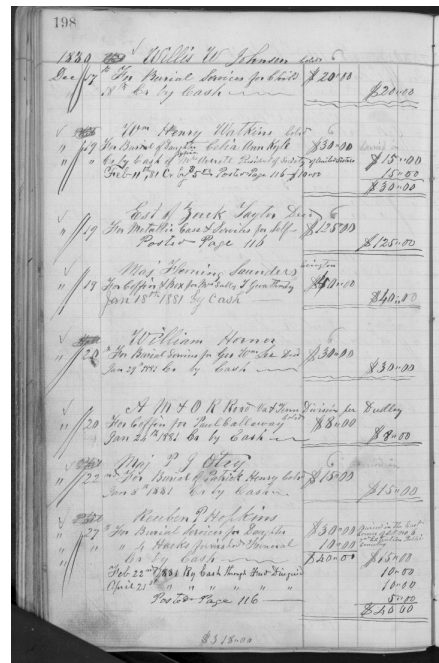 198
1880 Willis W Johnson cold
Dec 17 For Burial Services for Child $20.00
Cr by Cash $20.00
Wm Henry Watkins cold
" 19 For Burial of Daughter Celia Ann Kyle $30.00
" " Cr by Cash of Mrs President of Society $15.00
Feb 11th 81 Cr Posted Page 116 $10.00 15.00
$30.00
Est of Zack Taylor Decd
" 19 For Metallic Case & Services for Self $125.00
Posted Page 116 $125.00
Maj Fleming Saunders
" 19 For Coffin & Box for Mrs $40.00
Jan 18th 1881 by Cash $40.00
William Horner
" 20 For Burial Services for Geo Wm Lee Decd $30.00
Jan 29th 1881 Cr by Cash $30.00
A M & O R Road Va & Tenn Division per Dudley
" 20 For Coffin for Paul Callaway cold $8.00
Jan 24th 1881 Cr by Cash $8.00
Maj P J Otey
" 22nd For Burial of Patrick Henry cold $15.00
Jan 8th 1881 Cr by Cash $15.00
Reuben P Hopkins
" 27 For Burial Services for Daughter $30.00
" " 4 Hacks furnished Funeral 10.00
Cr by Cash $40.00 $15.00
Feb 22nd 1881 By Cash through Fred Diuguid 10.00
April 21st " " " " " " 10.00
Posted Page 116 5.00
$40.00
$318.00